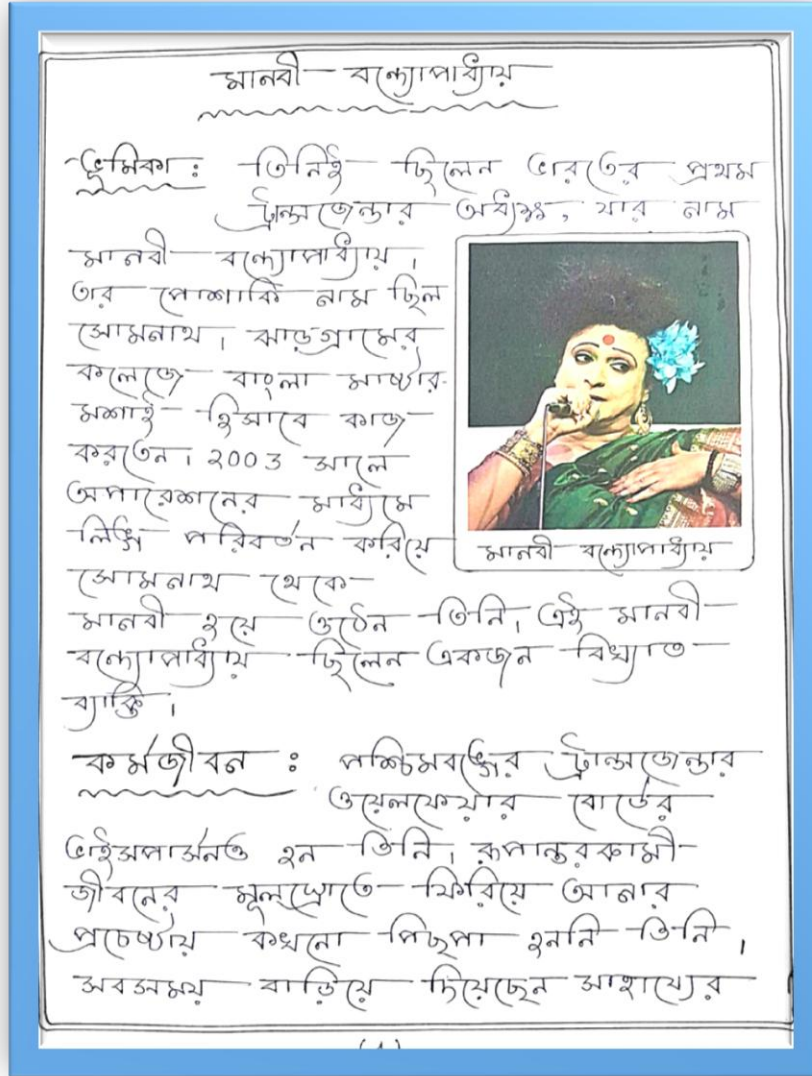 মানবী বন্দ্যোপাধ্যায়
ভূমিকা : তিনিই ছিলেন ভারতের প্রথম
ট্রান্সজেন্ডার অধ্যক্ষ, যার নাম
মানবী বন্দ্যোপাধ্যায়।
তার পোশাকি নাম ছিল
সোমনাথ। ঝাড়গ্রামের
কলেজে বাংলা মাষ্টার-
মশাই হিসাবে কাজ
করতেন। ২003 সালে
অপারেশনের মাধ্যমে
লিঙ্গ পরিবর্তন করিয়ে
সোমনাথ থেকে
মানবী বন্দ্যোপাধ্যায়
মানবী হয়ে ওঠেন তিনি। এই মানবী
বন্দ্যোপাধ্যায় ছিলেন একজন বিখ্যাত
ব্যাক্তি।
কর্মজীবন : পশ্চিমবঙ্গের ট্রান্সজেন্ডার
ওয়েলফেয়ার বোর্ডের
ভাইসপার্সনও হন তিনি। রূপান্তরকামী
জীবনের মূলস্রোতে ফিরিয়ে আনার
প্রচেষ্টায় কখনো পিছপা হননি তিনি।
সবসময় বাড়িয়ে দিয়েছেন সাহায্যের